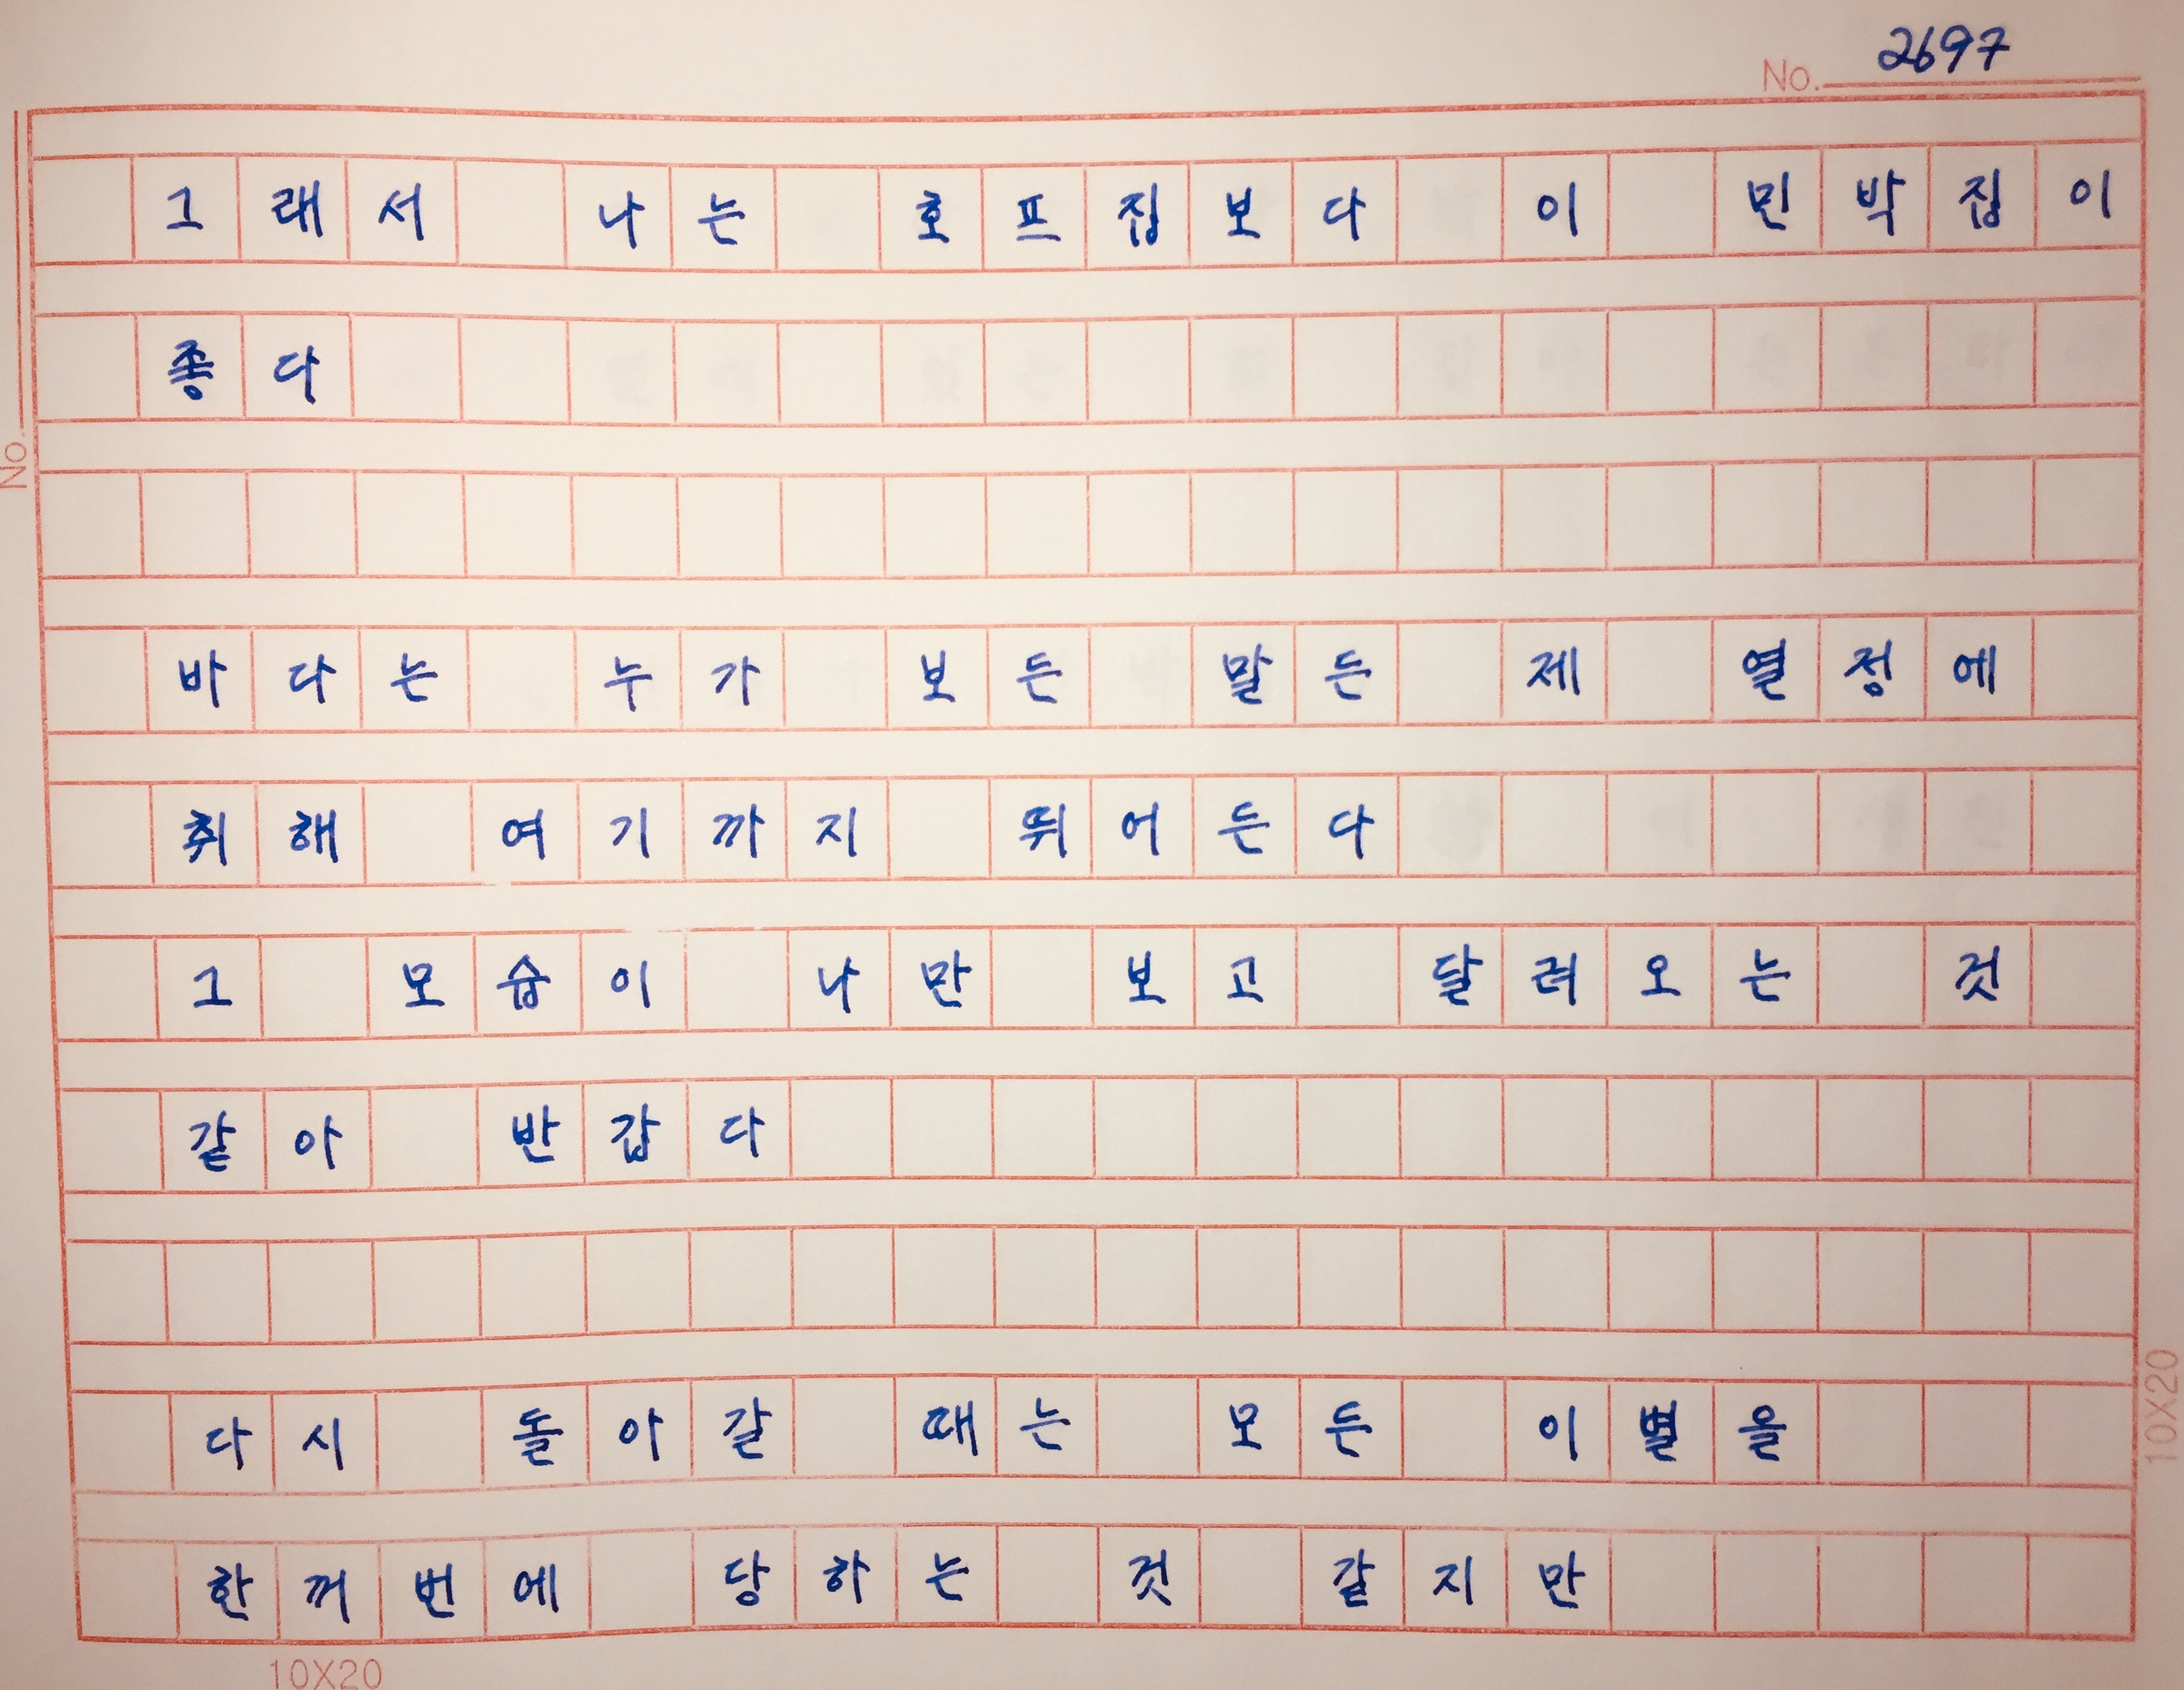 No. 2697
그래서 나는 호프집보다 이 민박집이
좋다
No.
바다는 누가 보든 말든 제 열정에
취해 여기까지 뛰어든다
그 모습이 나만 보고 달려오는 것
같아 반갑다
다시 돌아갈 때는 모든 이별을
한꺼번에 당하는 것 같지만
10X20
10X20